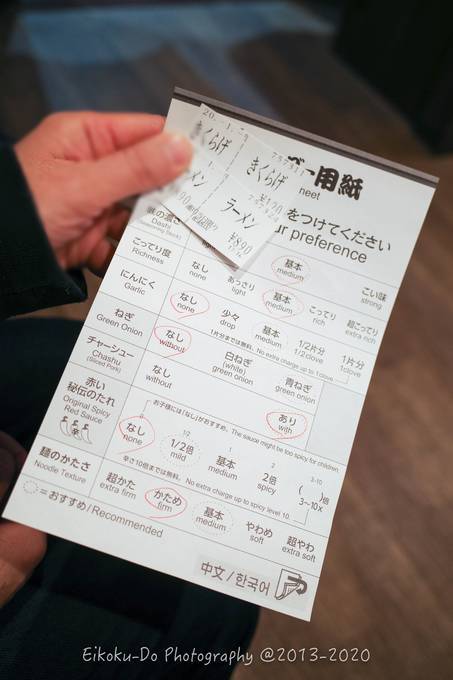 きくらげ
きくらげ
¥120
ラーメン
ラーメン
¥890
用紙
をつけてください
preference
味の濃さ
Dashi
基本
medium
こい味
strong
こってり度
Richness
なし
あっさり
light
基本
medium
こってり
rich
超こってり
extra rich
にんにく
Garlic
なし
none
少々
drop
基本
1/2片分
1/2clove
1片分
1clove
1片分までは無料。No extra charge up to 1clove
ねぎ
Green Onion
なし
without
白ねぎ
(white)
green onion
青ねぎ
green onion
チャーシュー
Chashu
(Sliced Pork)
なし
without
あり
with
赤い
秘伝のたれ
Original Spicy
Red Sauce
お子様には「なし」がおすすめ。The sauce might be too spicy for children.
なし
none
1/2
1/2倍
mild
1
基本
2
2倍
spicy
3-10
( 倍
3~10x
辛さ10倍までは無料。No extra charge up to spicy level 10.
麺のかたさ
Noodle Texture
超かた
extra firm
かため
firm
基本
medium
やわめ
soft
超やわ
extra soft
=おすすめ/Recommended
中文/한국어
Eikoku-Do Photography @2013-2020